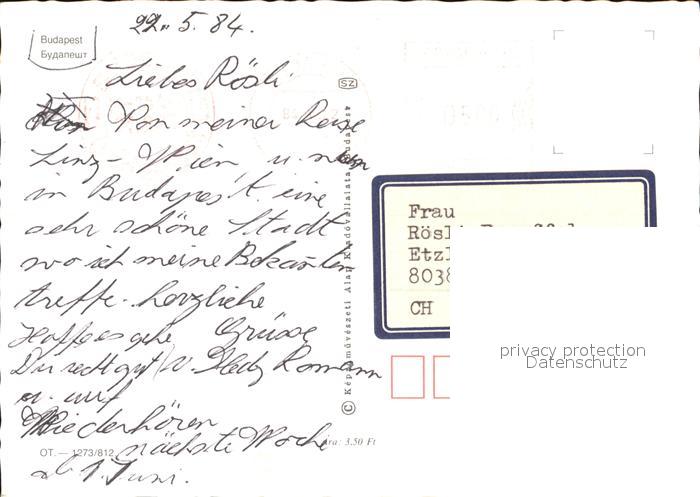 22. 5. 84.
Budapest
Будапешт
Liebes Rösli
Von meiner Reise
Linz – Wien, u. nun
in Budapest. eine
sehr schöne Stadt
wo ich meine Bekannten
treffe. herzliche
Hoffe es geht Grüsse
Dir recht gut
u. auf
Wiederhören
nächste Woche
ab 1. Juni.
OT. — 1273/812
Ára: 3.50 Ft
SZ
© Képzőművészeti Alap Kiadóvállalata, Budapest
Frau
Rösli
Etzl
8038
CH
privacy protection
Datenschutz